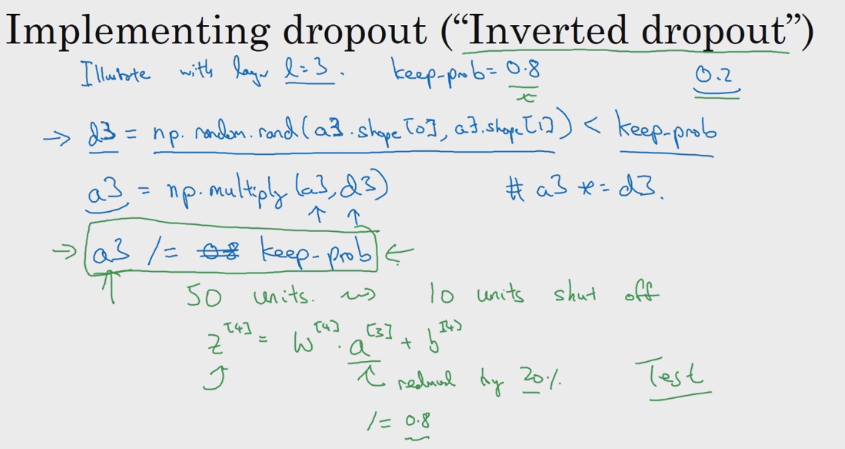 Implementing dropout ("Inverted dropout")
Illustrate with layer l=3. keep-prob= 0.8 0.2
→ d3 = np.random.rand(a3.shape[0], a3.shape[1]) < keep-prob
a3 = np.multiply(a3, d3) # a3 *= d3.
→ a3 /= 0.8 keep-prob ←
50 units. ⇝ 10 units shut off
z^[4] = W^[4] · a^[3] + b^[4]
reduced by 20%. Test
/= 0.8